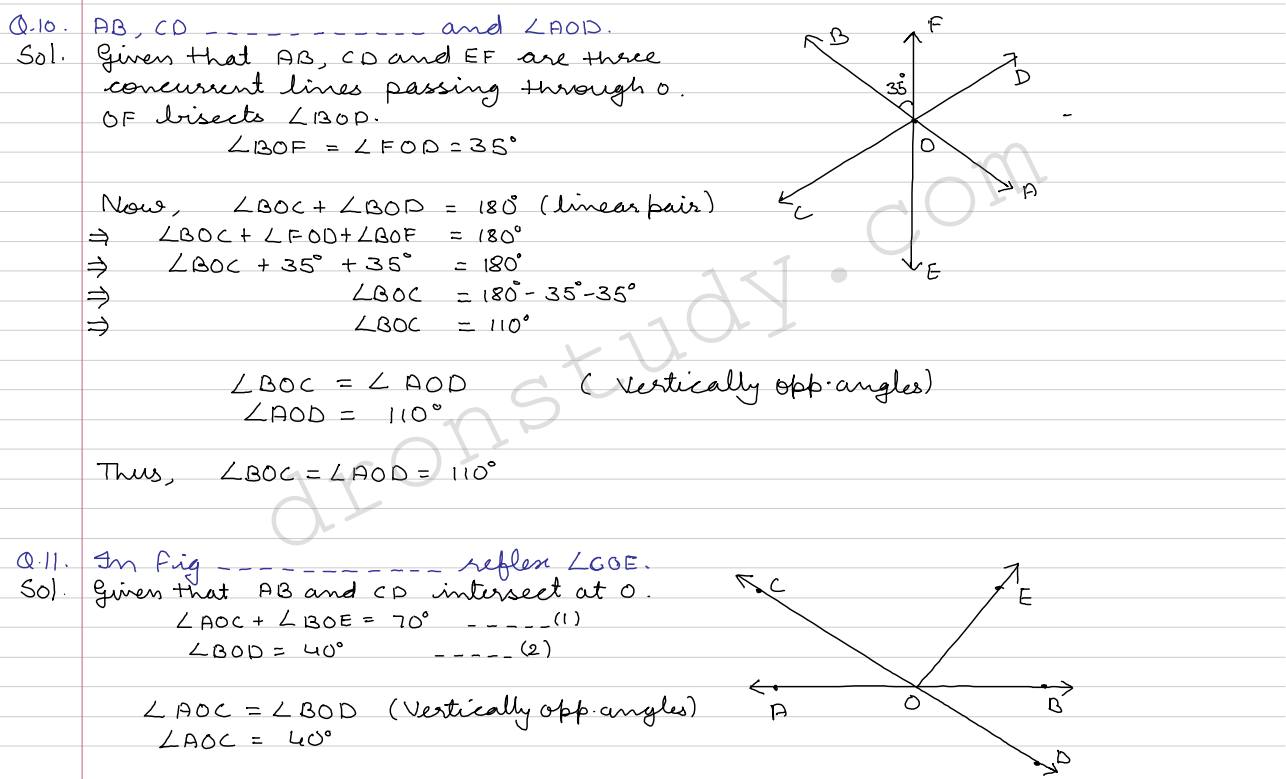 Q.10. AB, CD ------------ and ∠AOD.
Sol. Given that AB, CD and EF are three
concurrent lines passing through O.
OF bisects ∠BOD.
∠BOF = ∠FOD = 35°
Now, ∠BOC + ∠BOD = 180° (linear pair)
⇒ ∠BOC + ∠FOD + ∠BOF = 180°
⇒ ∠BOC + 35° + 35° = 180°
⇒ ∠BOC = 180° - 35° - 35°
⇒ ∠BOC = 110°
∠BOC = ∠AOD (Vertically opp. angles)
∠AOD = 110°
Thus, ∠BOC = ∠AOD = 110°
B
F
D
35°
O
A
C
E
dronstudy.com
Q.11. In fig ------------ reflex ∠COE.
Sol. Given that AB and CD intersect at O.
∠AOC + ∠BOE = 70° -----(1)
∠BOD = 40° -----(2)
∠AOC = ∠BOD (Vertically opp. angles)
∠AOC = 40°
C
E
A
O
B
D